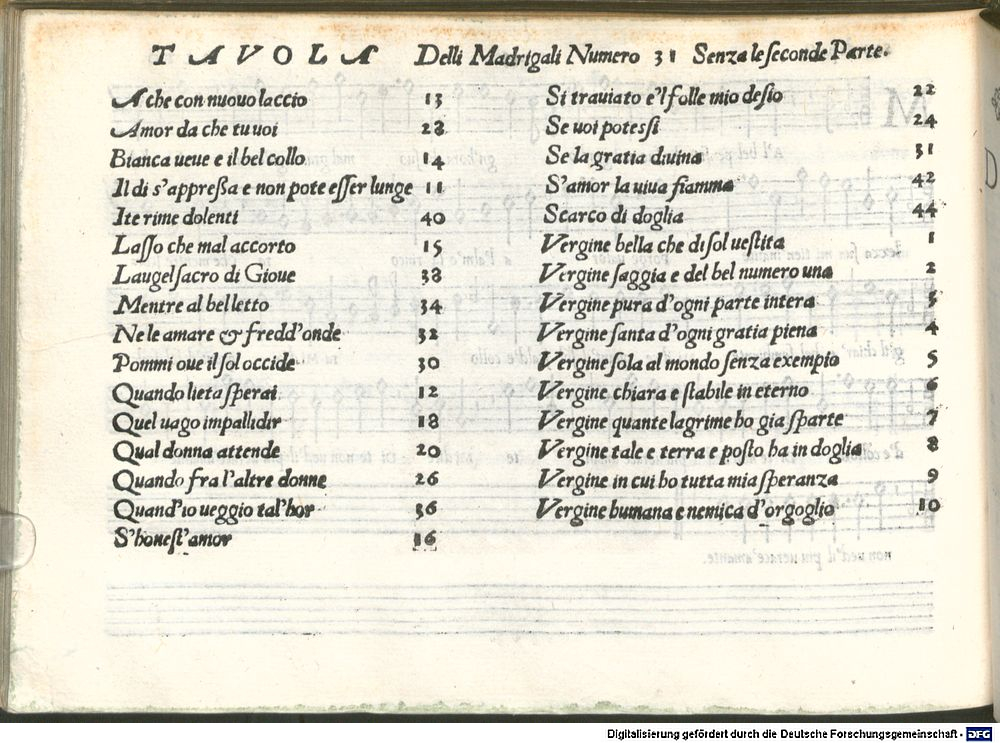 TAVOLA Delli Madrigali Numero 31 Senza le seconde Parte.
A che con nuouo laccio 13
Amor da che tu uoi 28
Bianca ueue e il bel collo 14
Il di s'appreßa e non pote eſſer lunge 11
Ite rime dolenti 40
Laſſo che mal accorto 15
Laugel sacro di Gioue 38
Mentre al bel letto 34
Ne le amare & fredd'onde 32
Pommi oue il sol occide 30
Quando lieta ſperai 12
Quel uago impallidir 18
Qual donna attende 20
Quando fra l'altre donne 26
Quand'io ueggio tal'hor 36
S'honeſt'amor 16
Si trauiato e'l folle mio deſio 22
Se uoi poteſſi 24
Se la gratia diuina 31
S'amor la uiua fiamma 42
Scarco di doglia 44
Vergine bella che di sol ueſtita 1
Vergine ſaggia e del bel numero una 2
Vergine pura d'ogni parte intera 3
Vergine ſanta d'ogni gratia piena 4
Vergine ſola al mondo ſenza exempio 5
Vergine chiara e ſtabile in eterno 6
Vergine quante lagrime ho gia ſparte 7
Vergine tale e terra e poſto ha in doglia 8
Vergine in cui ho tutta mia ſperanza 9
Vergine humana e nemica d'orgoglio 10
Digitalisierung gefördert durch die Deutsche Forschungsgemeinschaft - DFG